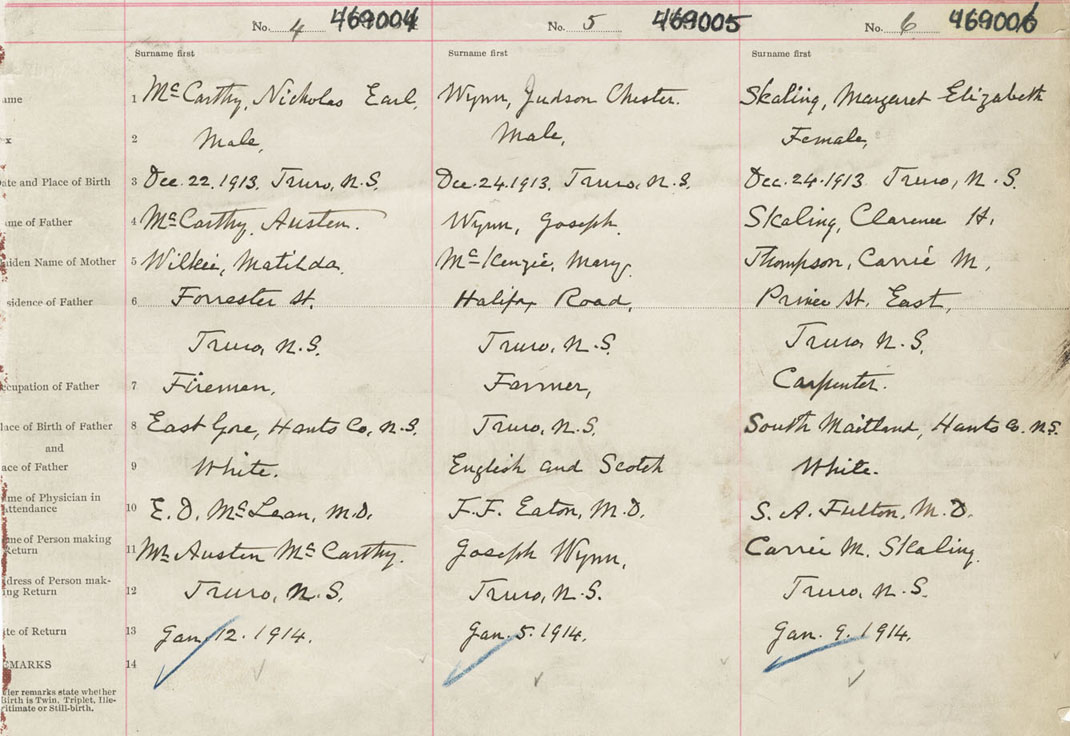 No. 4 469004 No. 5 469005 No. 6 469006
Surname first Surname first Surname first
ame 1 McCarthy, Nicholas Earl, Wynn, Judson Chester. Skaling, Margaret Elizabeth
x 2 Male, Male, Female,
ate and Place of Birth 3 Dec. 22, 1913, Truro, N.S. Dec. 24, 1913, Truro, N.S. Dec. 24. 1913 Truro, N.S.
ame of Father 4 McCarthy, Austen. Wynn, Joseph. Skaling, Clarence H.
aiden Name of Mother 5 Wilkie, Matilda. McKenzie, Mary. Thompson, Carrie M.
sidence of Father 6 Forrester St. Halifax Road, Prince St. East,
Truro, N.S. Truro, N.S. Truro, N.S.
ccupation of Father 7 Fireman, Farmer, Carpenter.
lace of Birth of Father 8 East Gore, Hants Co, N.S. Truro, N.S. South Maitland, Hants Co. N.S.
and
ace of Father 9 White. English and Scotch White.
me of Physician in
ttendance 10 E. D. McLean, M.D. F. F. Eaton, M.D. S. A. Fulton, M.D.
me of Person making
Return 11 Austen McCarthy. Joseph Wynn, Carrie M. Skaling.
dress of Person mak-
ing Return 12 Truro, N.S. Truro, N.S. Truro, N.S.
te of Return 13 Jan. 12. 1914. Jan. 5. 1914. Jan. 9. 1914.
EMARKS 14
der remarks state whether
Birth is Twin, Triplet, Ille-
gitimate or Still-birth.